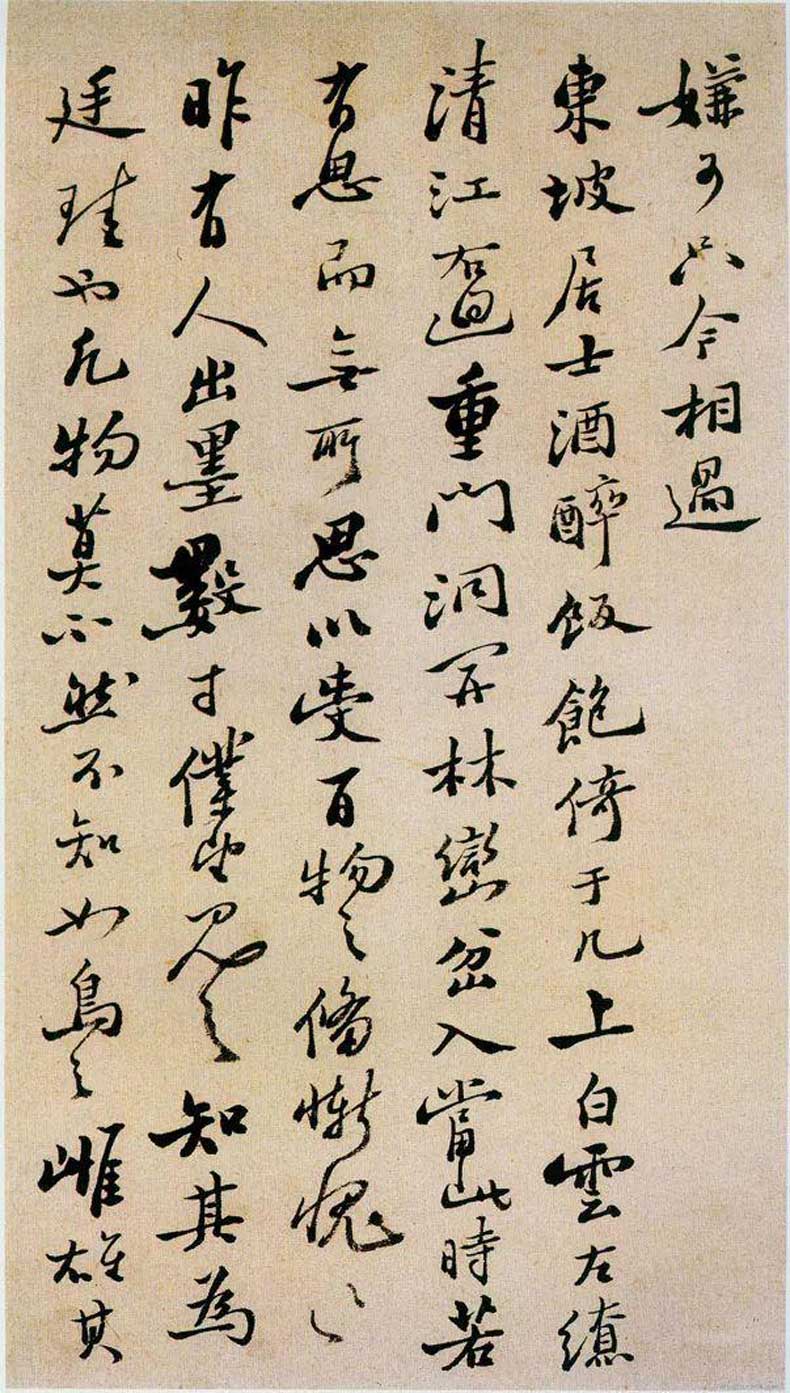 嫌可只今相遇
東坡居士酒醉飯飽倚于几上白雲左繚
清江右洄重門洞開林巒岔入當此時若
有思而無所思以受百物之備慚愧〻〻
昨有人出墨數寸僕望見之知其為
廷珪也凡物莫不然不知如鳥之雌雄其